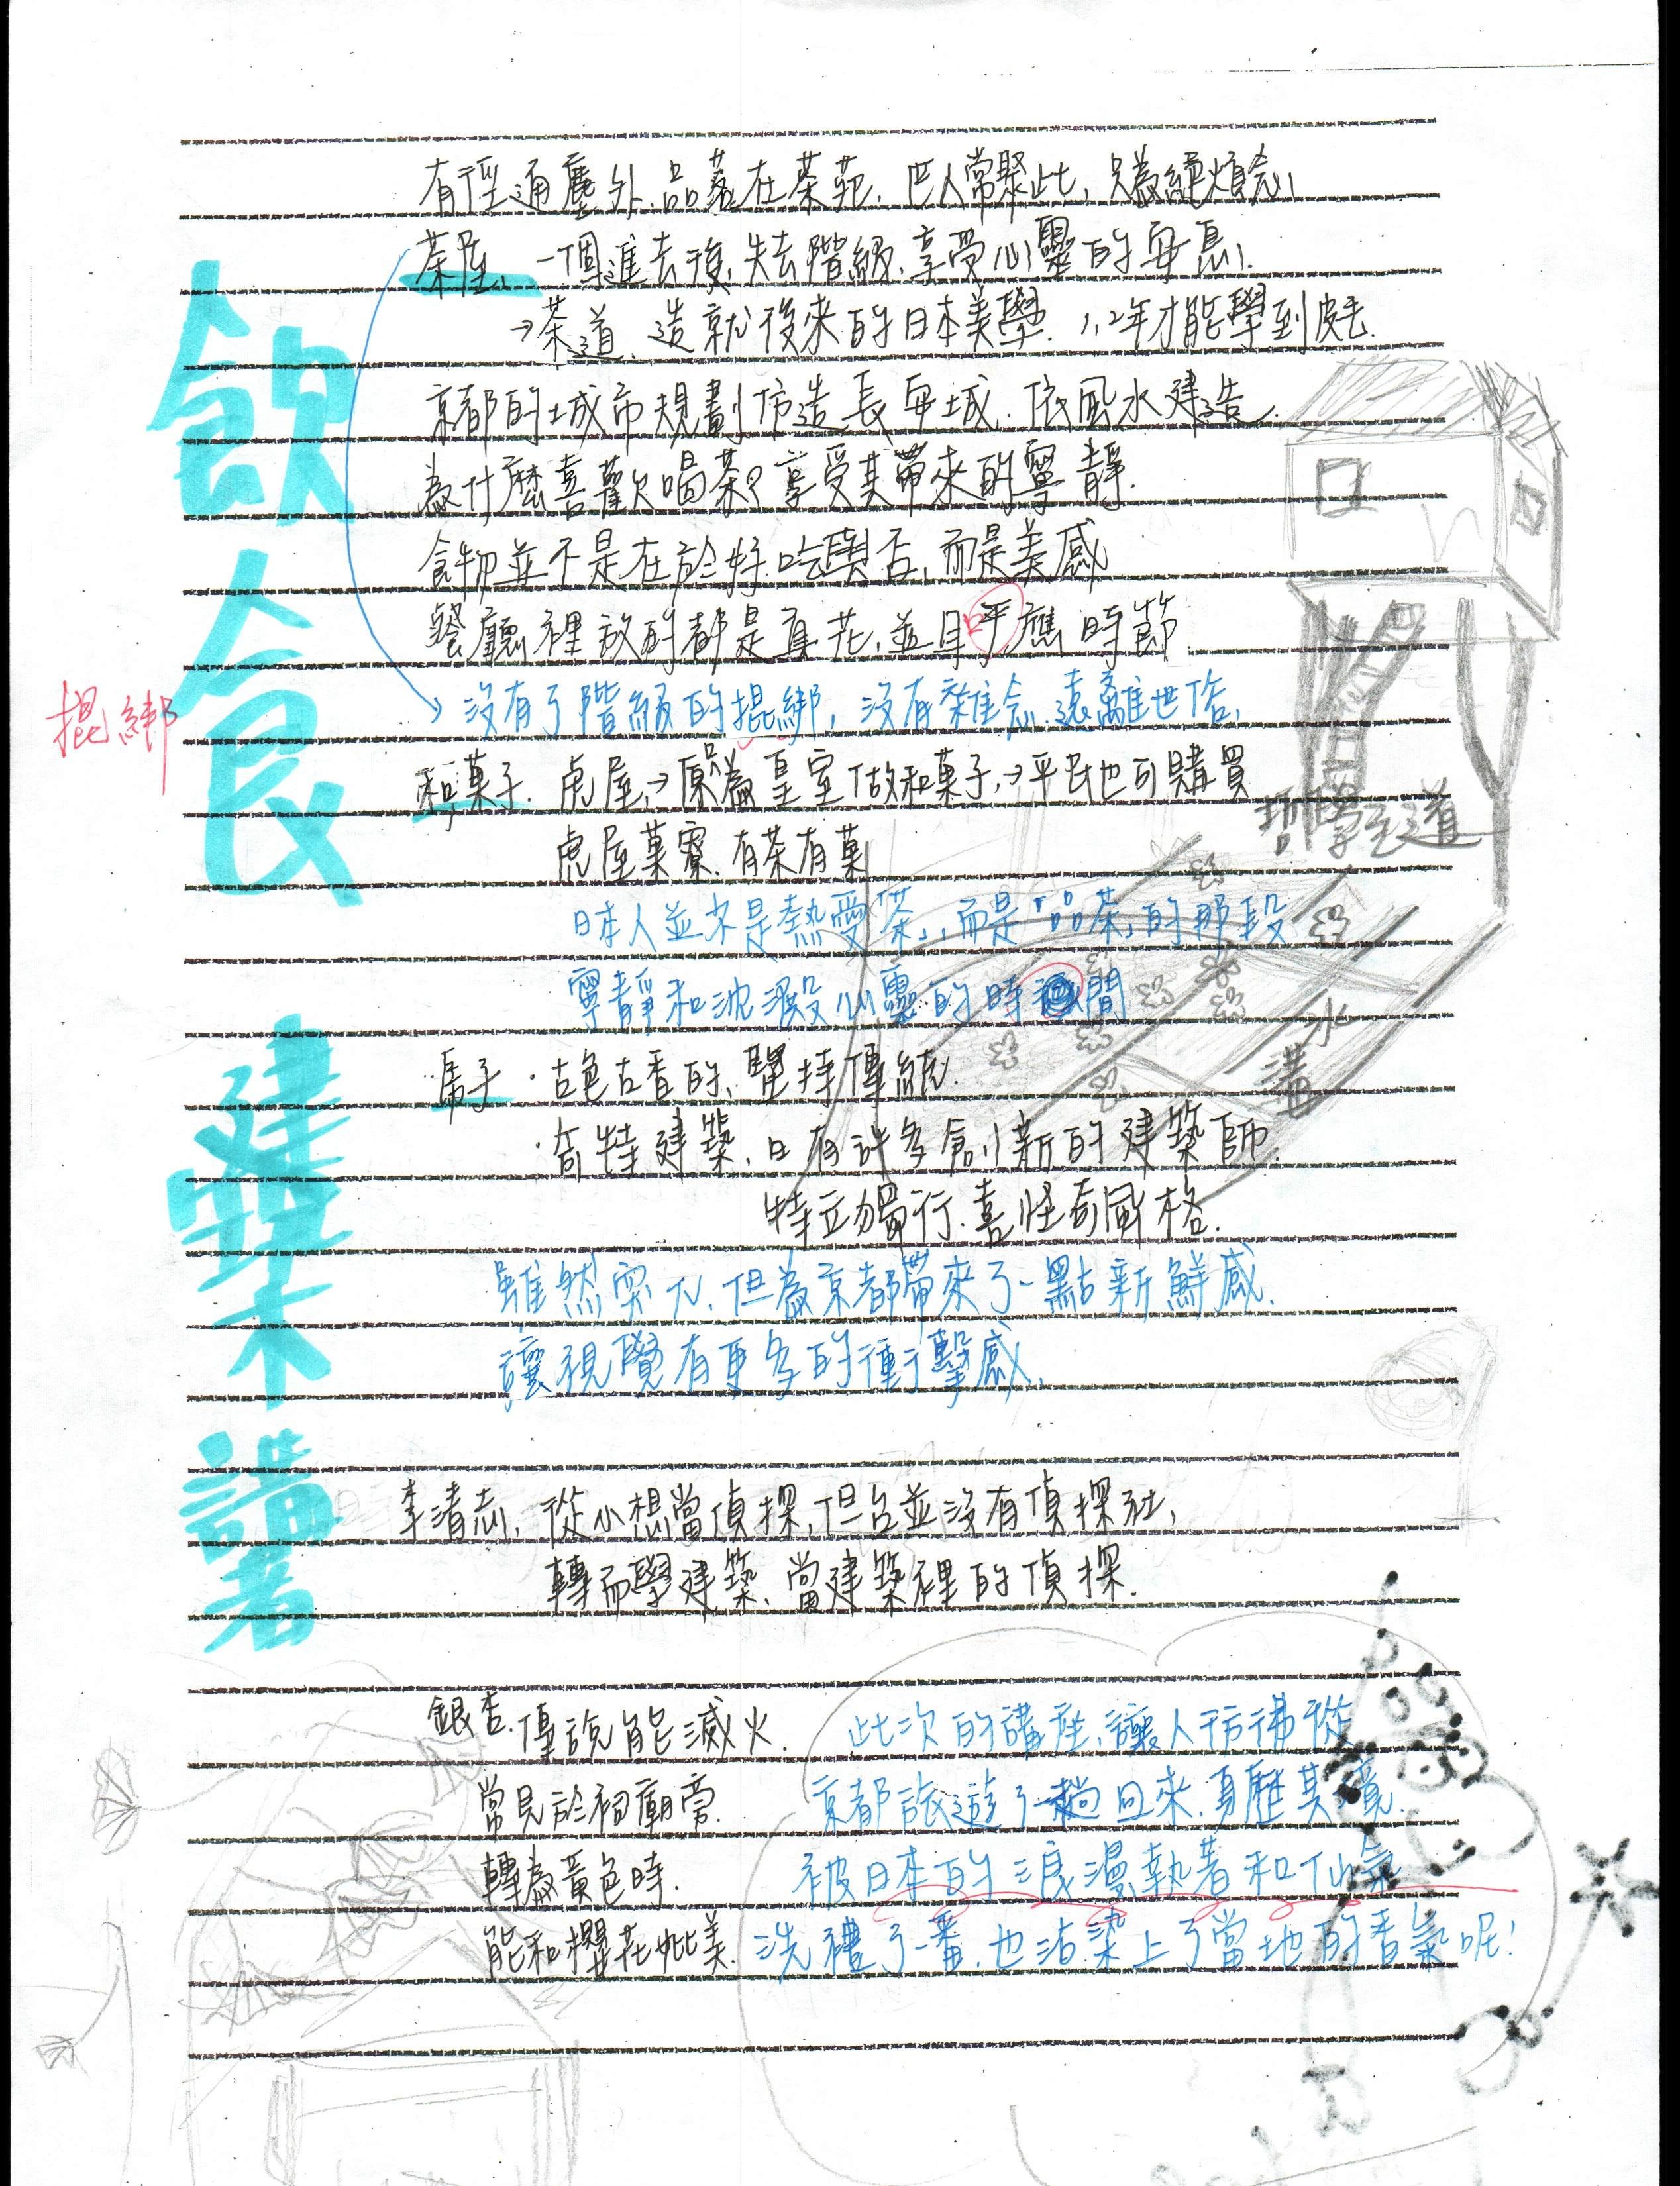 有徑通塵外,品茗在茶苑,巴人常聚此,只為絕煩念.
茶屋, 一個進去後,失去階級,享受心靈的安息.
→茶道,造就後來的日本美學. 1,2年才能學到皮毛.
京都的城市規劃仿造長安城.依風水建造.
為什麼喜歡喝茶?享受其帶來的寧靜.
食物並不是在於好吃與否,而是美感
餐廳裡放的都是真花,並且呼應時節.
→沒有了階級的捆綁,沒有雜念.遠離世俗.
捆綁
和菓子. 虎屋→原為皇室做和菓子,→平民也可購買
虎屋菓寮.有茶有菓
哲學之道
日本人並不是熱愛「茶」,而是「品茶」的那段
寧靜和沈澱心靈的時間
水溝
房子 ·古色古香的,堅持傳統.
·奇特建築,日有許多創新的建築師.
特立獨行.喜怪奇風格.
雖然突兀,但為京都帶來了一點新鮮感.
讓視覺有更多的衝擊感.
李清志, 從小想當偵探,但台並沒有偵探社,
轉而學建築,當建築裡的偵探.
銀杏.傳說能滅火.
常見於祠廟旁.
轉為黃色時.
能和櫻花媲美.
此次的講座,讓人彷彿從
京都旅遊了一趟回來.身歷其境.
被日本的浪漫執著和仙氣
洗禮了一番.也沾染上了當地的香氣呢!
飲食
建築
講者